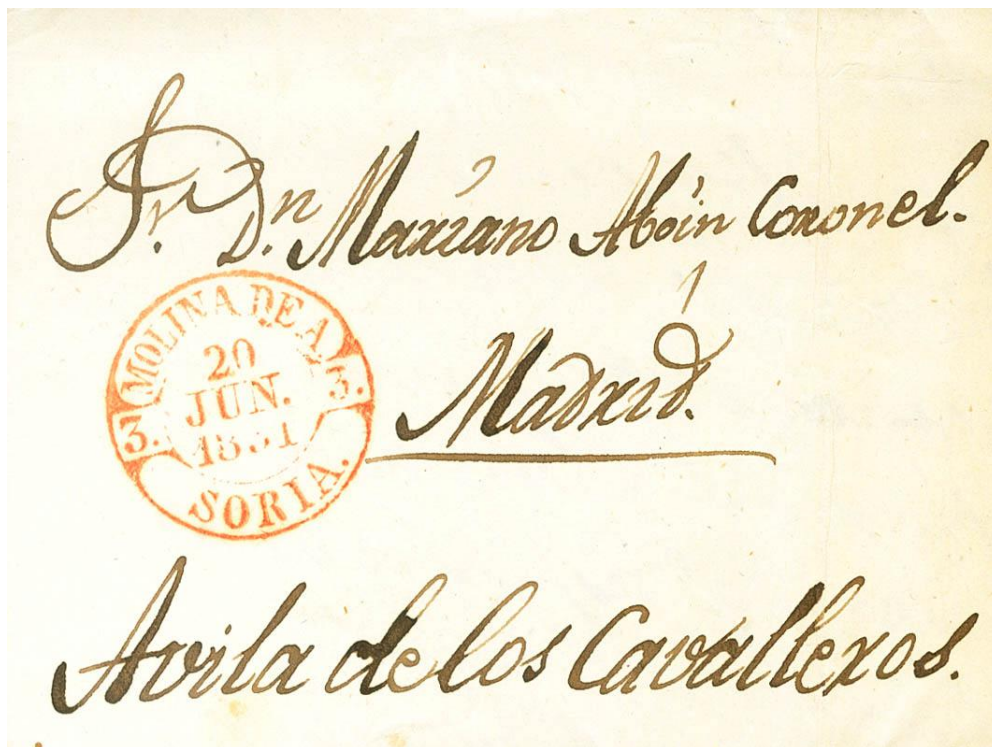 Sr. Dn. Mariano Aboin Coronel.
MOLINA DE A.
3. 3.
20
JUN.
1851
SORIA.
Madrid.
Avila de los Cavalleros.